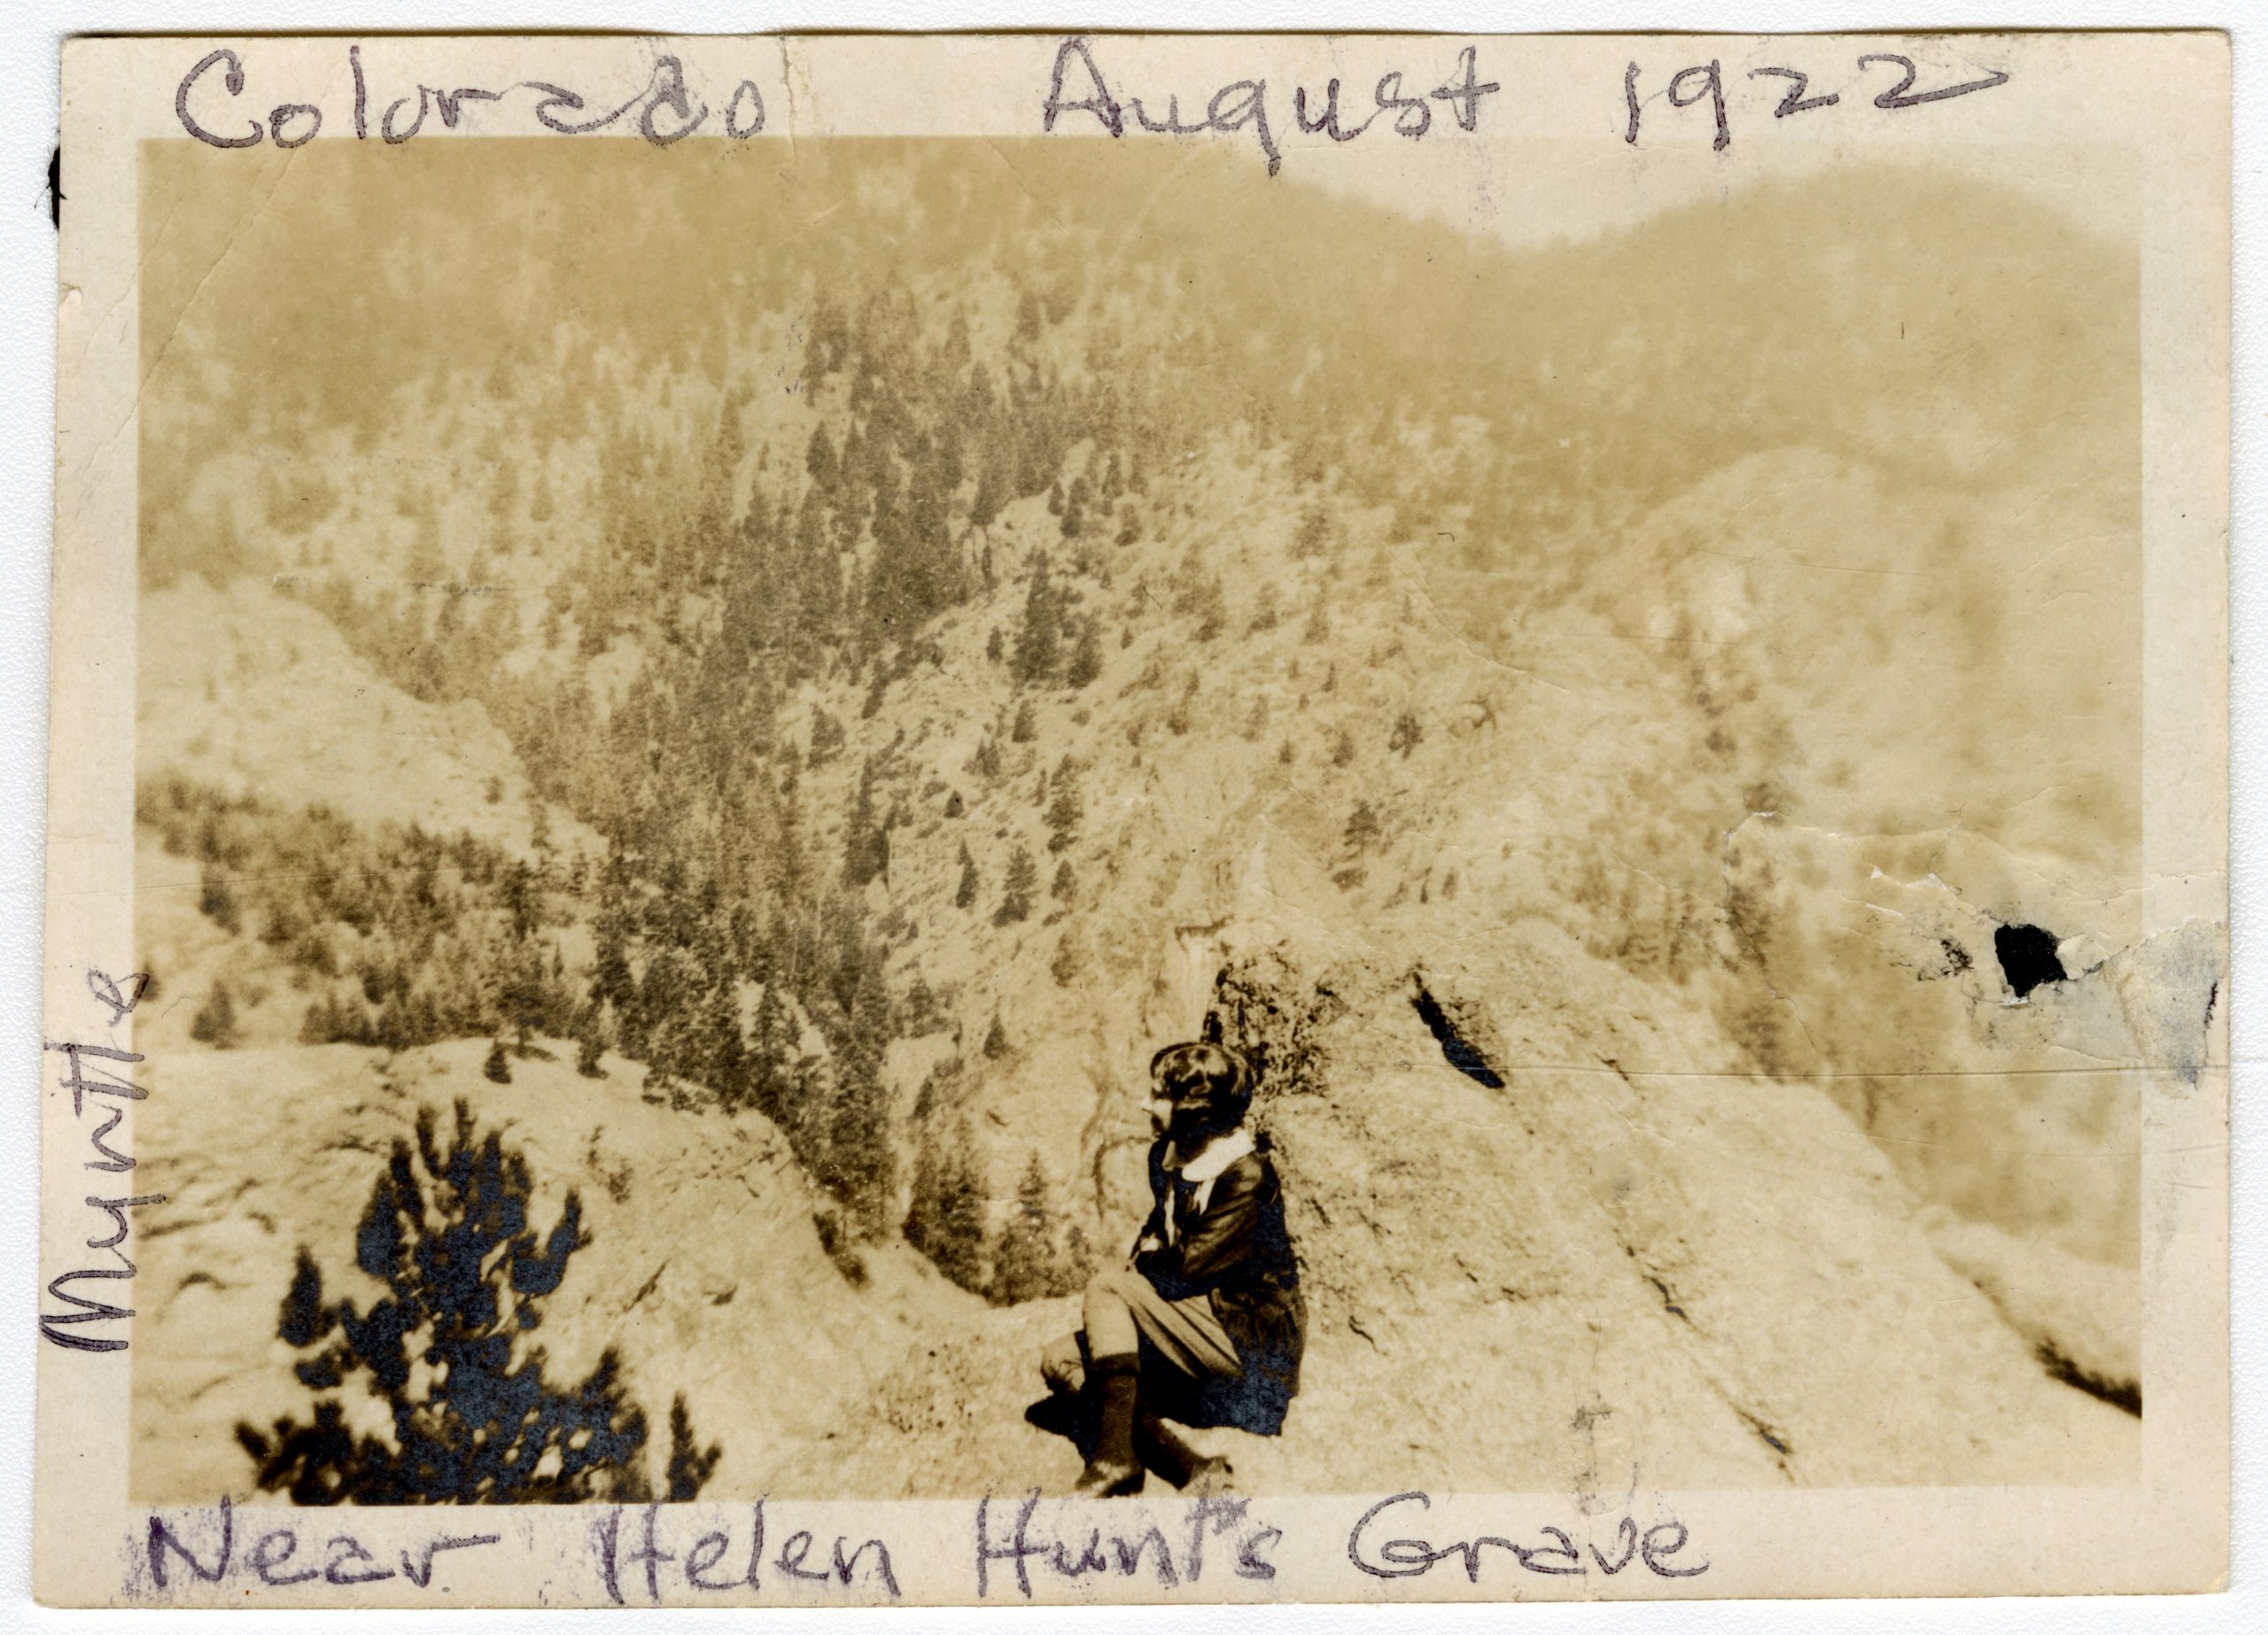 Colorado August 1922
Myrtle
Near Helen Hunt's Grave